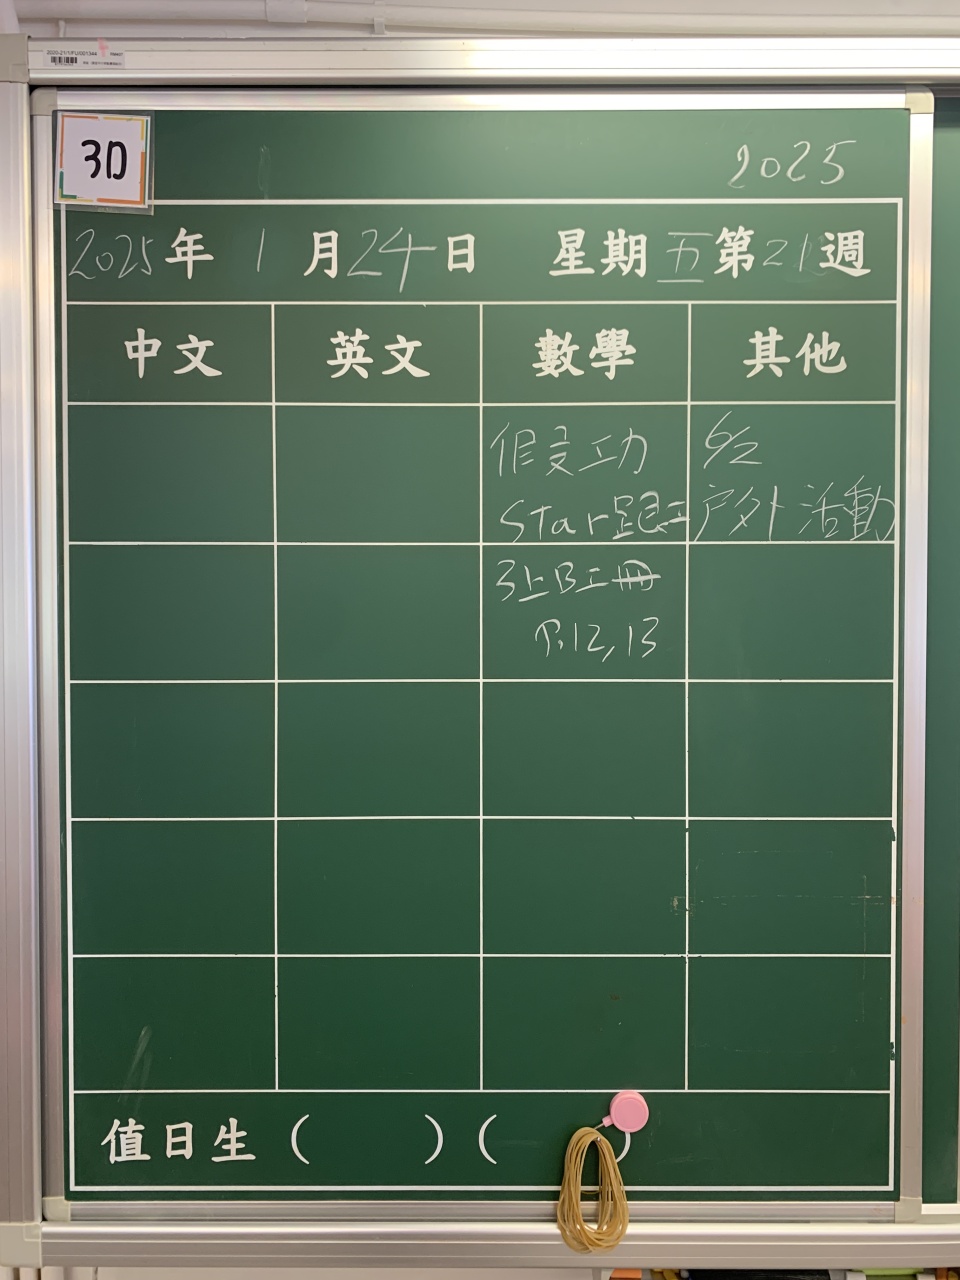 2020-21/1/FU/001344
3D
2025
2025年1月24日 星期五第21週
中文 英文 數學 其他
假受功 6/2
Star跟工 户外活動
3上B工冊
P.12,13
值日生( )( )